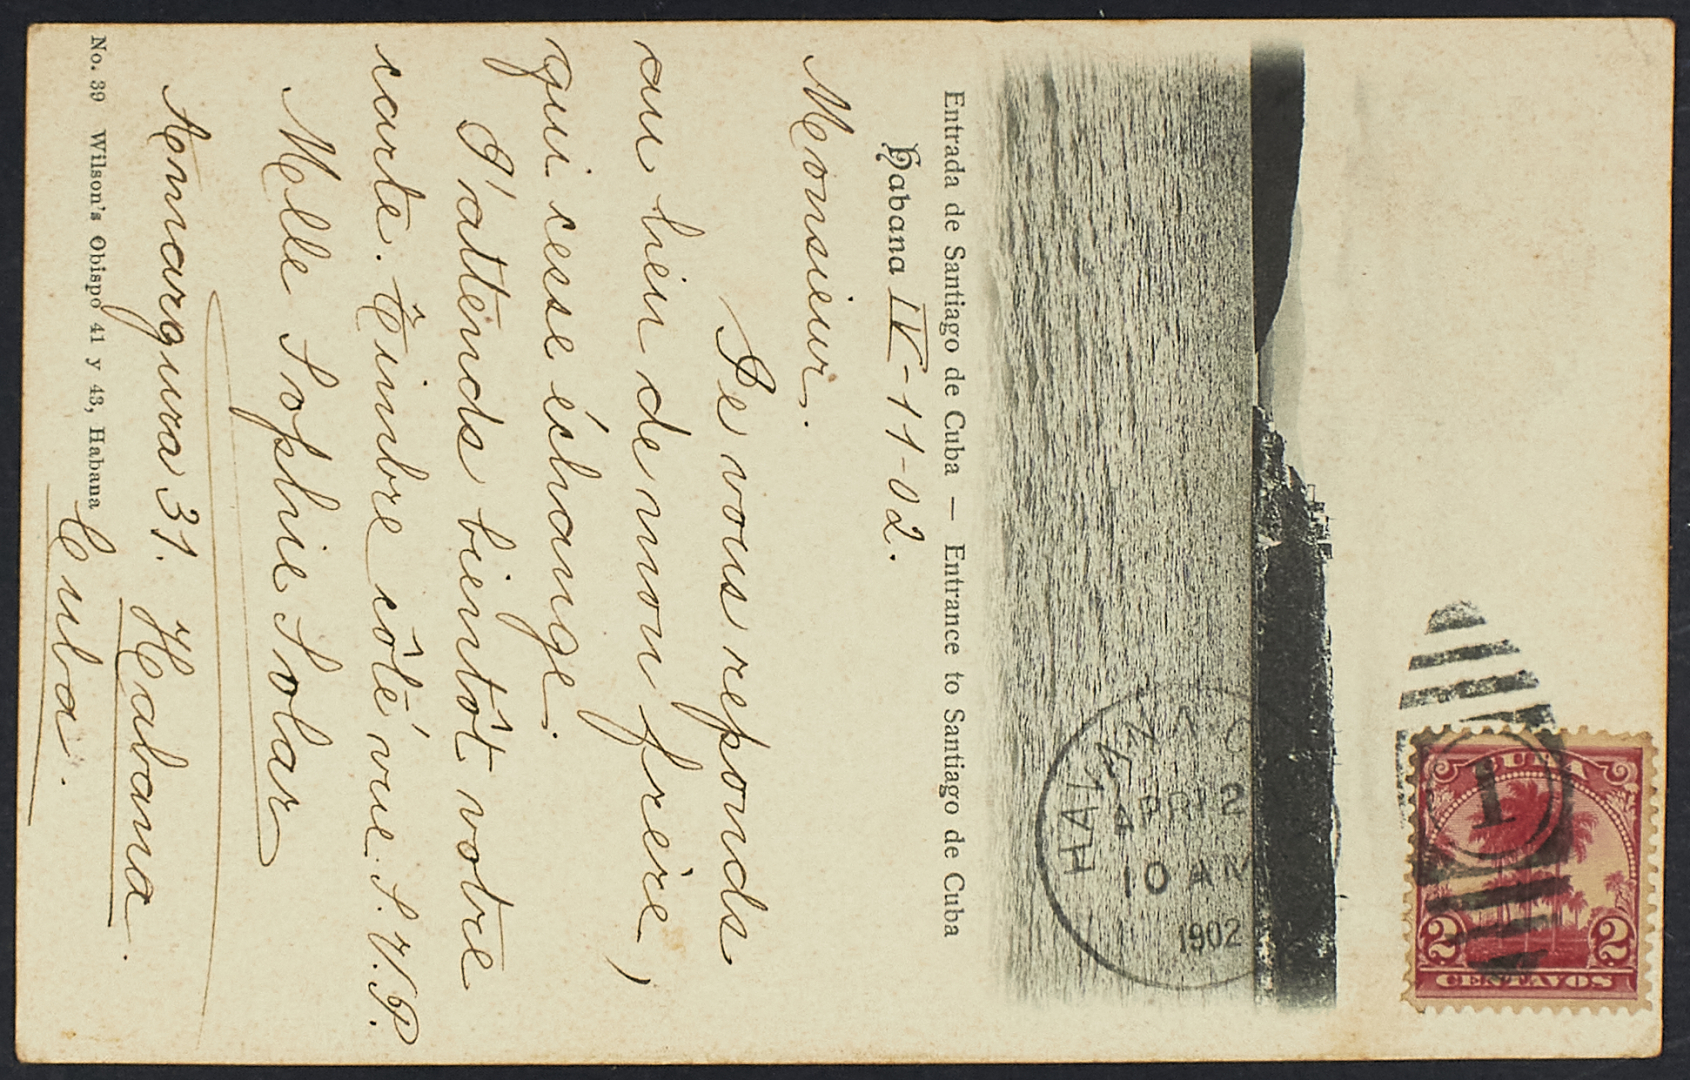 Entrada de Santiago de Cuba — Entrance to Santiago de Cuba
Habana IV-11-02.
Monsieur.
Je vous reponds
au lieu de mon frère,
qui cesse échange.
J'attends bientôt votre
carte. Timbre côté vue. S.V.P.
Melle Sophie Solar
Amargura 31. Habana.
Cuba.
No. 39 Wilson's Obispo 41 y 43, Habana
HAVANA C
APR 12
10 AM
1902
1
CUBA
2 2
CENTAVOS